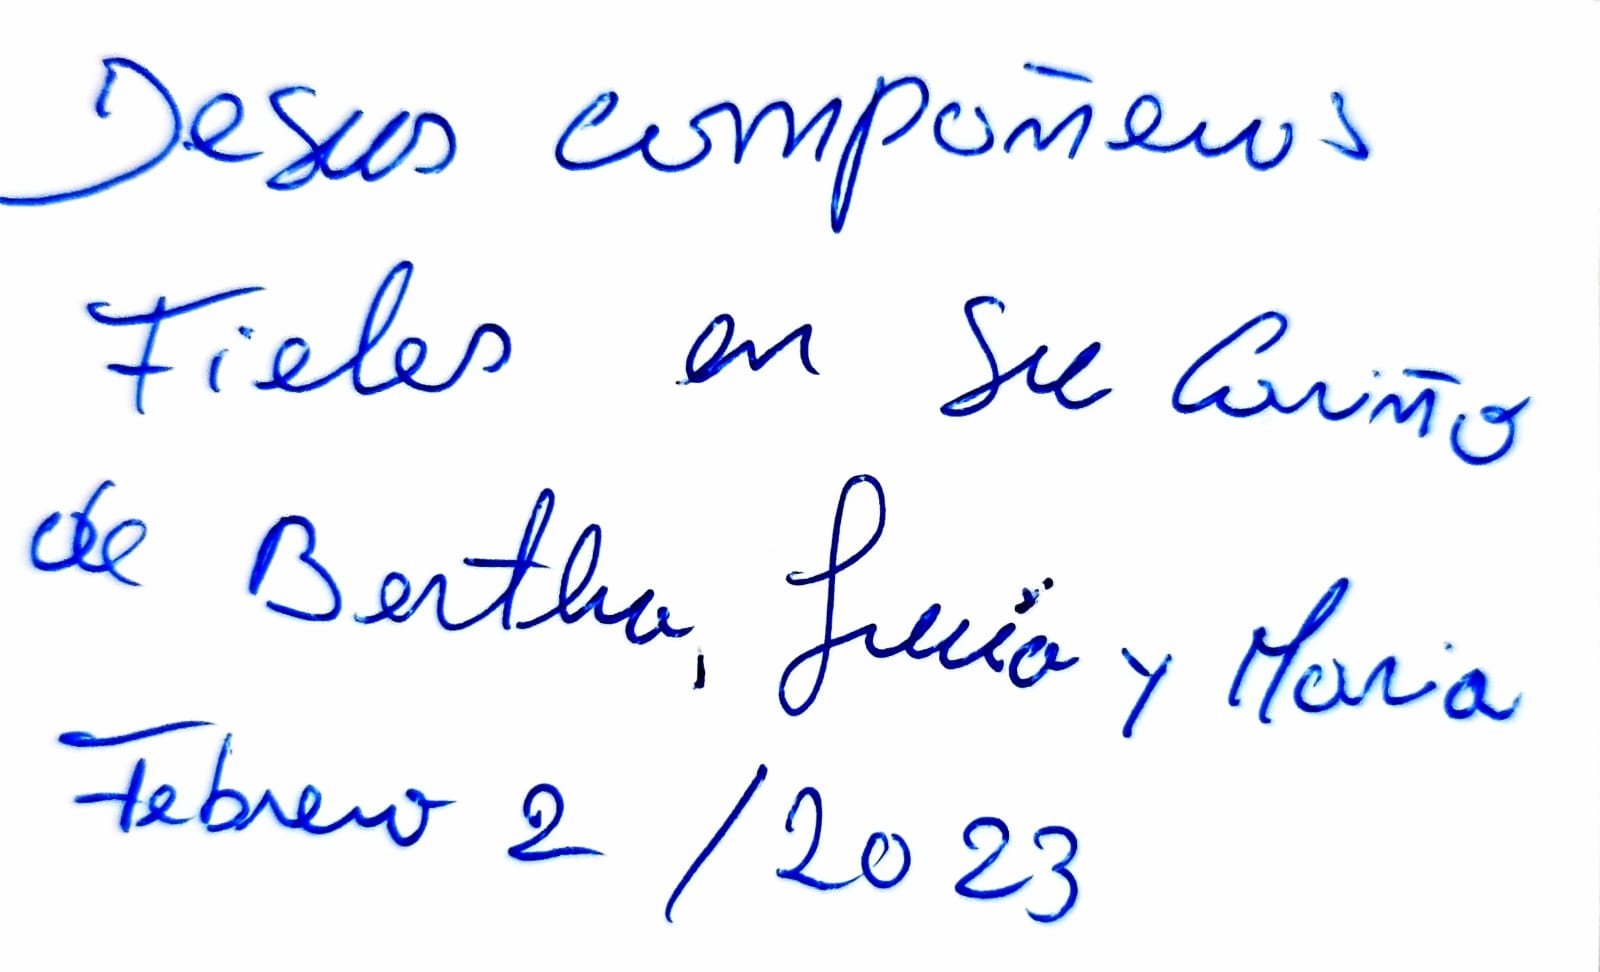 De sus compañeros
Fieles en su Cariño
de Bertha, Lucía y Maria
Febrero 2 / 2023